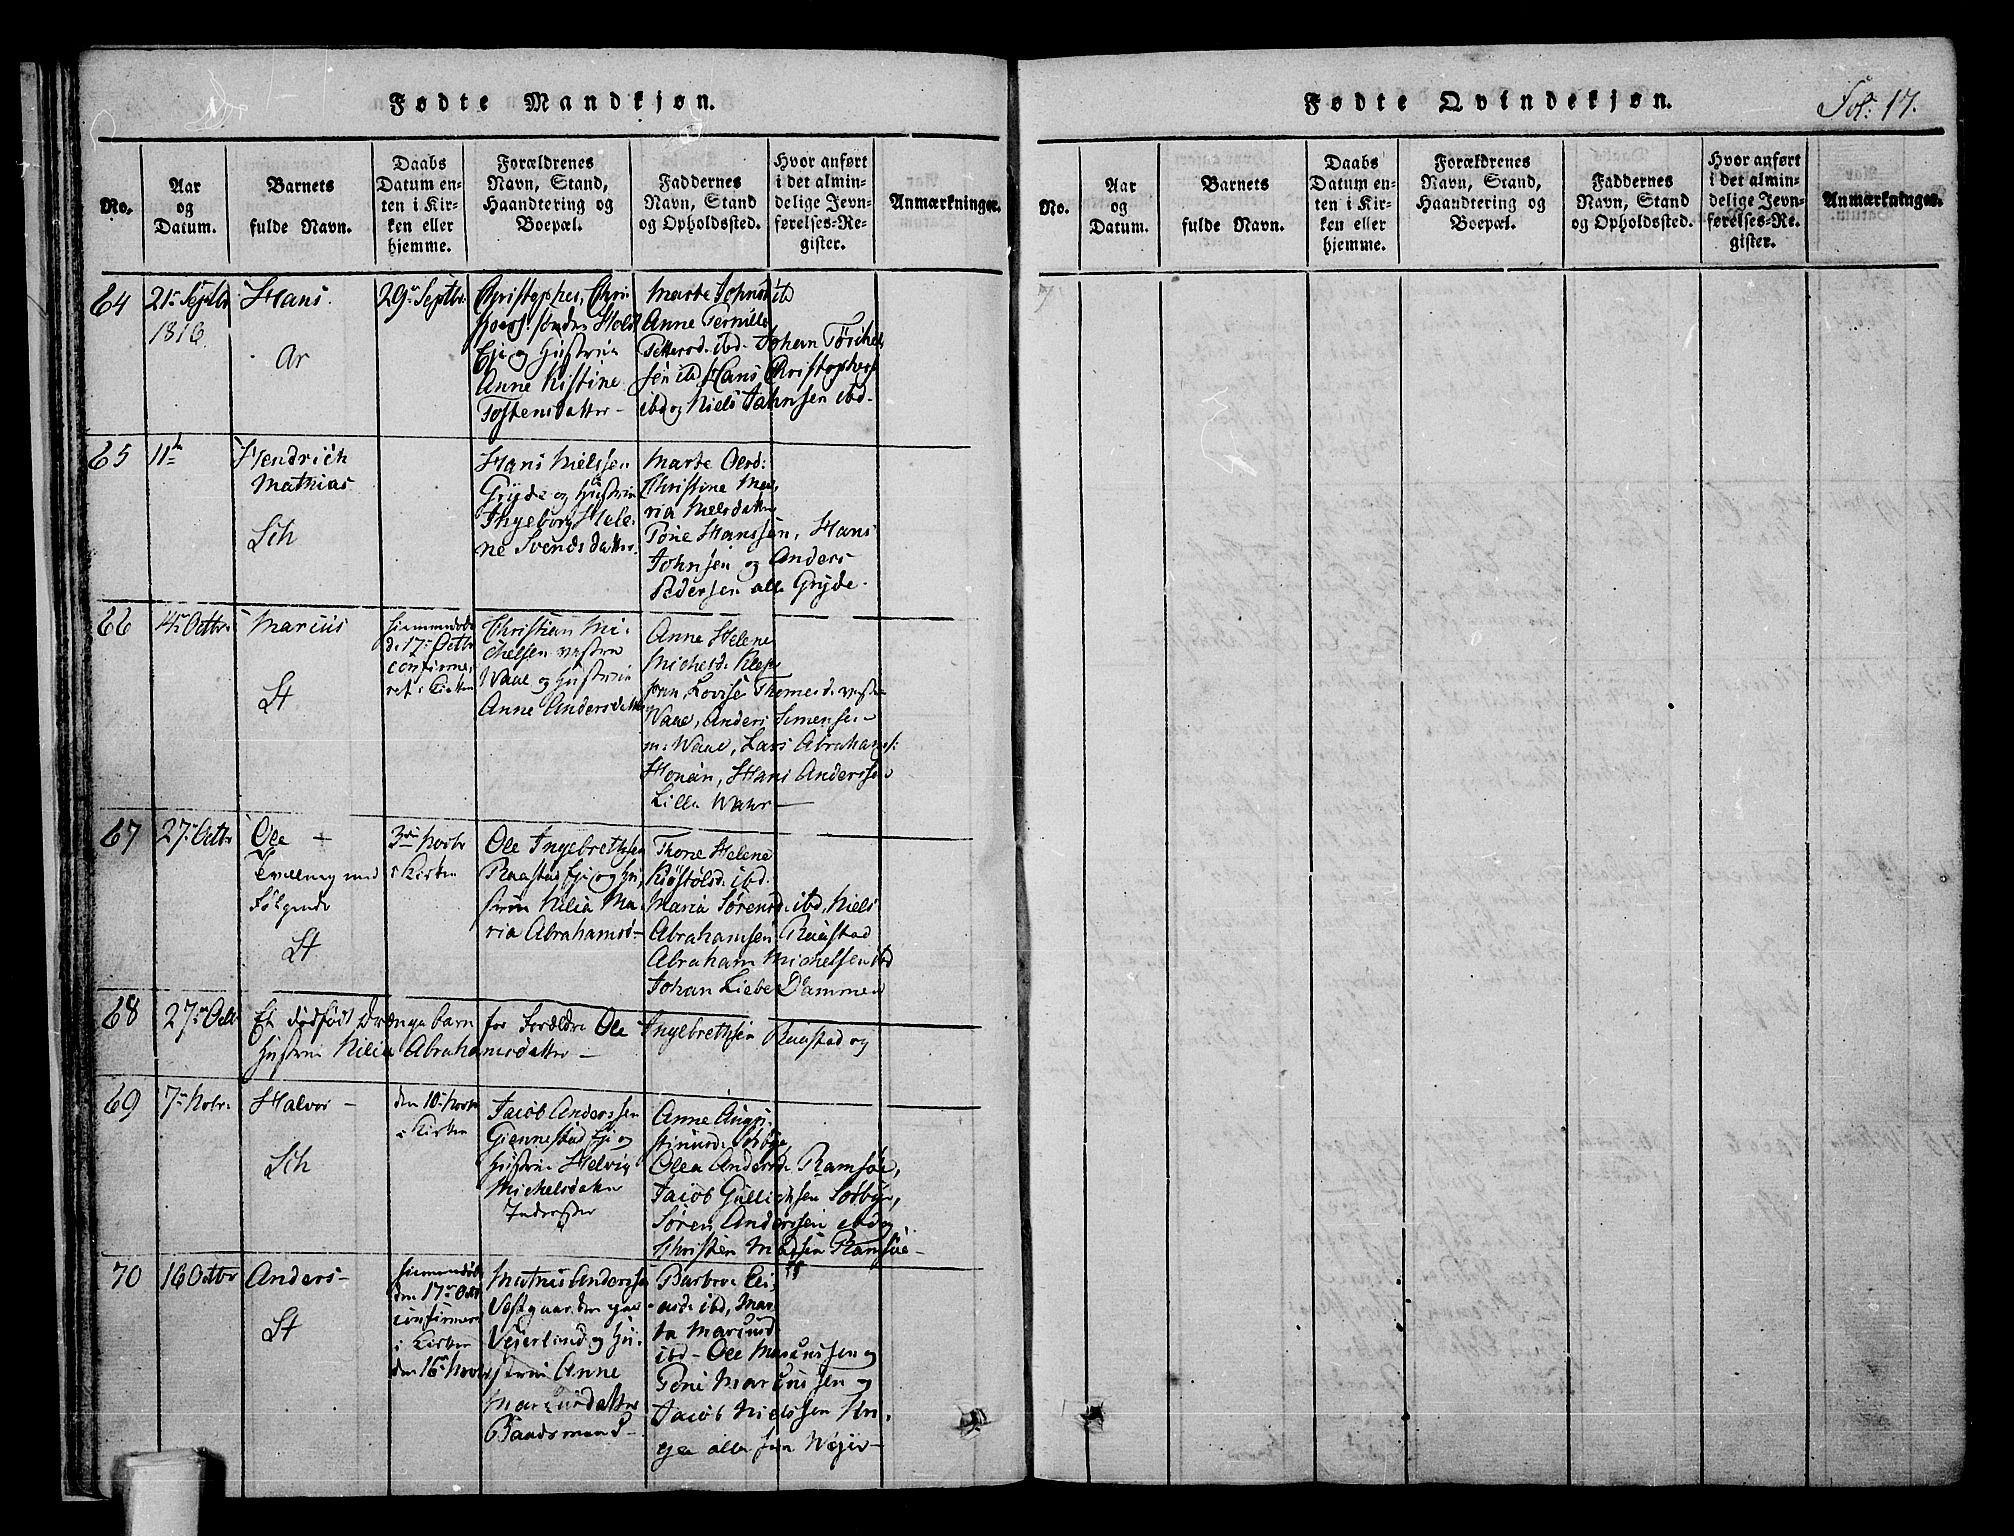 Fødte Mandkjøn.
No.
Aar
og
Datum.
Barnets
fulde Navn.
Daabs
Datum en-
ten i Kir-
ken eller
hjemme.
Forældrenes
Navn, Stand,
Haandtering og
Boepæl.
Faddernes
Navn, Stand
og Opholdssted.
Hvor anført
i det almin-
delige Jevn-
førelses-Re-
gister.
Anmærkninger.
64
21 Septbr
1816.
Hans.
Ar
29 Septbr
Christopher
Eje og Hustrue
Anne Kistine
Tostensdatter -
Marte ibd
Anne Pernille
Pettersd. ibd. Johan
sen ibd Hans Christophers
ibd og Niels Jahnsen ibd.
65
11
Hendrich
Mathias
Sch
Hans Nielssen
Gryde og Hustrue
Ingeborg Hele-
ne Svendsdatter.
Marte Olsd:
Christine Ma-
ria Nielsdatter
Tone Hanssen, Hans
Johnsen og Anders
Pedersen alle Gryde.
66
4 Octbr.
Marius
St
Hiemmedøbt
d. 17 Octbr
confirme-
ret i Kirken
Christian Mi-
chelsen vestre
Waae og Hustrue
Anne Andersdatter
Anne Helene
Michelsd.
Lovise Thomesd. vestre
Waae, Anders Simensen
Waae, Lars Abrahams:
Honan, Hans Anderssen
Lille
67
27 Octbr
Ole +
Tvilling med
Følgende
St
3 Novbr
i Kirken
Ole Ingebrethsen
Raastad Eje og Hu-
strue Kilia Ma-
ria Abrahamsd-
Thone Helene
Kiøstølsd. ibd.
Maria Sørensd. ibd, Niels
Abrahamsen Raastad
Abraham Michelsen ibd
Johan Liebe Dammen
68
27 Octb
Et dødfødt Drenge barn for Forældre Ole Ingebrethsen Raastad og
Hustrue Kilia Abrahamsdatter -
69
7 Novbr.
Halvor -
Sch
den 10 Novbr
i Kirken
Jacob Anderssen
Giennestad Eje og
Hustrue Helvig
Michelsdatter
Anne Augu-
stinusd. Sørbye,
Olea Andersd. Ramsøe,
Jacob Gullichsen Sørbye,
Søren Anderssen ibd og
Christen Madsen Ramsøe -
70
16 Octbr
Anders -
St
Hiemmedøbt
den 17 Oct
confirmeret
i Kirken
den 16 Novbr
Mathis Anderssen
Vestgaarden paa
Vejerland og Hu-
strue Anne
Marcusdatter
Baadsmand -
Barbroe Eli-
asd. ibd, Mar-
ta Marcusd
ibd - Ole Marcussen og
Tone Marcussen og
Jacob Nielssen
alle paa Vejer-
Fødte Qvindekjøn.
Fol: 17.
No.
Aar
og
Datum.
Barnets
fulde Navn.
Daabs
Datum en-
ten i Kir-
ken eller
hjemme.
Forældrenes
Navn, Stand,
Haandtering og
Boepæl.
Faddernes
Navn, Stand
og Opholdssted.
Hvor anført
i det almin-
delige Jevn-
førelses-Re-
gister.
Anmærkninger.